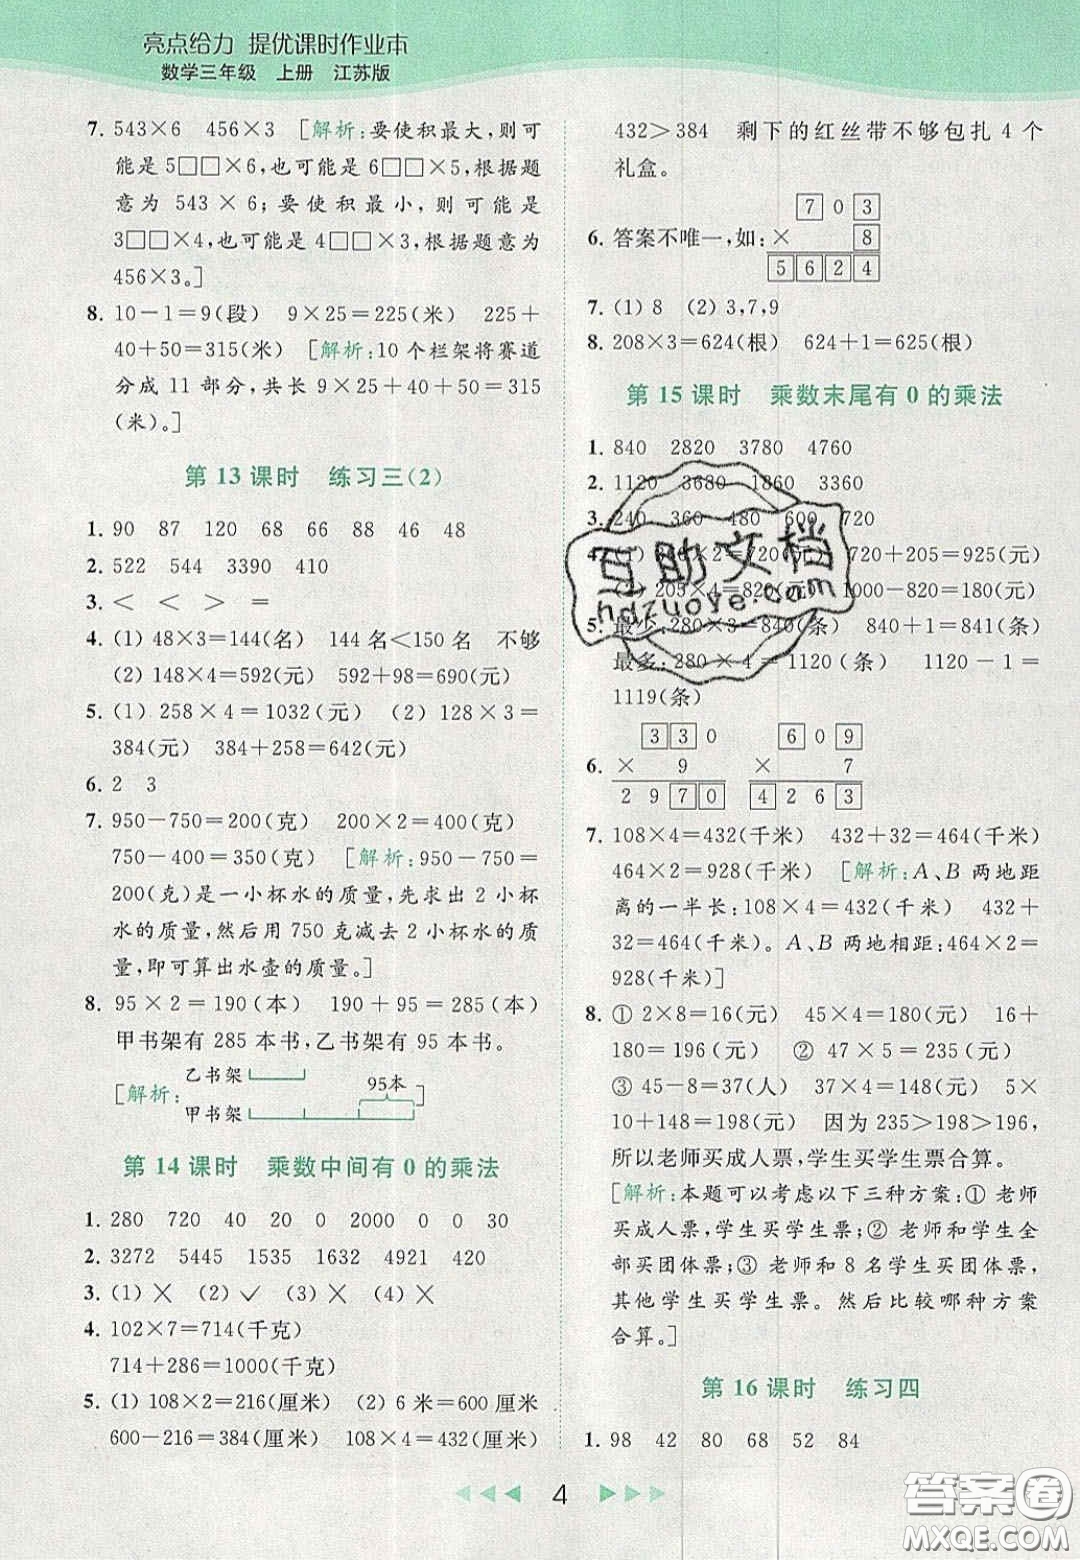 亮点给力 提优课时作业本
数学三年级 上册 江苏版
7. 543×6 456×3 [解析:要使积最大,则可
能是5□□×6,也可能是6□□×5,根据题
意为 543 × 6;要使积最小,则可能是
3□□×4,也可能是4□□×3,根据题意为
456×3。]
8. 10-1=9(段) 9×25=225(米) 225+
40+50=315(米) [解析:10个栏架将赛道
分成 11 部分,共长 9×25+40+50=315
(米)。]
第 13 课时 练习三(2)
1. 90 87 120 68 66 88 46 48
2. 522 544 3390 410
3. < < > =
4. (1) 48×3=144(名) 144名<150名 不够
(2) 148×4=592(元) 592+98=690(元)
5. (1) 258×4=1032(元) (2) 128×3=
384(元) 384+258=642(元)
6. 2 3
7. 950-750=200(克) 200×2=400(克)
750-400=350(克) [解析:950-750=
200(克)是一小杯水的质量,先求出2小杯
水的质量,然后用750克减去2小杯水的质
量,即可算出水壶的质量。]
8. 95×2=190(本) 190+95=285(本)
甲书架有 285 本书,乙书架有 95 本书。
[解析:
乙书架
95本
甲书架
]
第 14 课时 乘数中间有 0 的乘法
1. 280 720 40 20 0 2000 0 0 30
2. 3272 5445 1535 1632 4921 420
3. (1) ✕ (2) ✓ (3) ✕ (4) ✕
4. 102×7=714(千克)
714+286=1000(千克)
5. (1) 108×2=216(厘米) (2) 6米=600厘米
600-216=384(厘米) 108×4=432(厘米)
432>384 剩下的红丝带不够包扎4个
礼盒。
7 0 3
6. 答案不唯一,如:× 8
5 6 2 4
7. (1) 8 (2) 3,7,9
8. 208×3=624(根) 624+1=625(根)
第 15 课时 乘数末尾有 0 的乘法
1. 840 2820 3780 4760
2. 1120 3680 1860 3360
3. 240 360 480 600 720
4. (1) ×2=720(元) 720+205=925(元)
(2) 205×4=820(元) 1000-820=180(元)
5. 最少:280×3=840(条) 840+1=841(条)
最多:280×4=1120(条) 1120-1=
1119(条)
3 3 0 6 0 9
6. × 9 × 7
2 9 7 0 4 2 6 3
7. 108×4=432(千米) 432+32=464(千米)
464×2=928(千米) [解析:A、B两地距
离的一半长:108×4=432(千米) 432+
32=464(千米)。A、B两地相距:464×2=
928(千米)]
8. ① 2×8=16(元) 45×4=180(元) 16+
180=196(元) ② 47×5=235(元)
③ 45-8=37(人) 37×4=148(元) 5×
10+148=198(元) 因为 235>198>196,
所以老师买成人票,学生买学生票合算。
[解析:本题可以考虑以下三种方案:① 老师
买成人票,学生买学生票;② 老师和学生全
部买团体票;③ 老师和8名学生买团体票,
其他学生买学生票。然后比较哪种方案
合算。]
第 16 课时 练习四
1. 98 42 80 68 52 84
4
互助文档
hdzuoye.com
答案圈
MXQE.COM